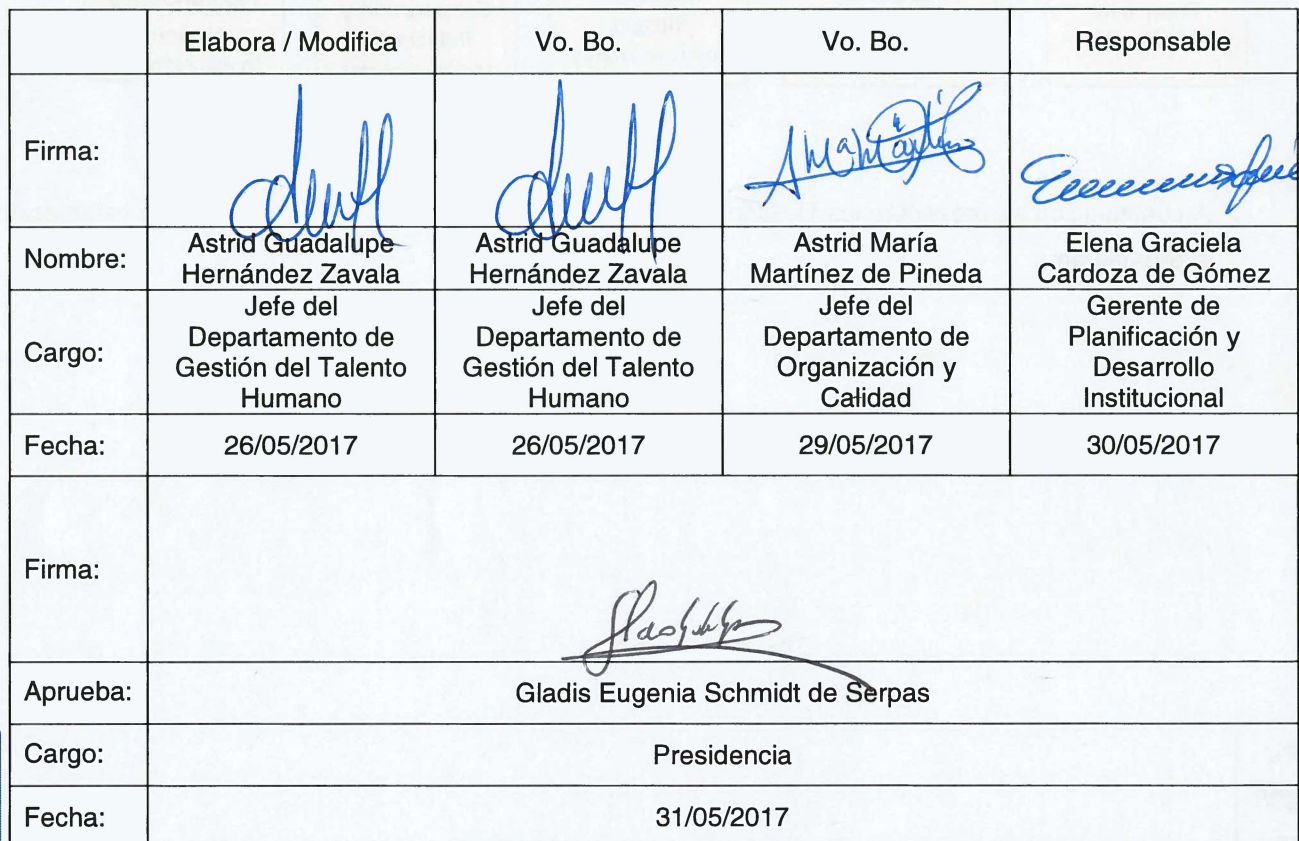 Elabora / Modifica Vo. Bo. Vo. Bo. Responsable
Firma:
Nombre: Astrid Guadalupe Hernández Zavala Astrid Guadalupe Hernández Zavala Astrid María Martínez de Pineda Elena Graciela Cardoza de Gómez
Cargo: Jefe del Departamento de Gestión del Talento Humano Jefe del Departamento de Gestión del Talento Humano Jefe del Departamento de Organización y Calidad Gerente de Planificación y Desarrollo Institucional
Fecha: 26/05/2017 26/05/2017 29/05/2017 30/05/2017
Firma:
Aprueba: Gladis Eugenia Schmidt de Serpas
Cargo: Presidencia
Fecha: 31/05/2017